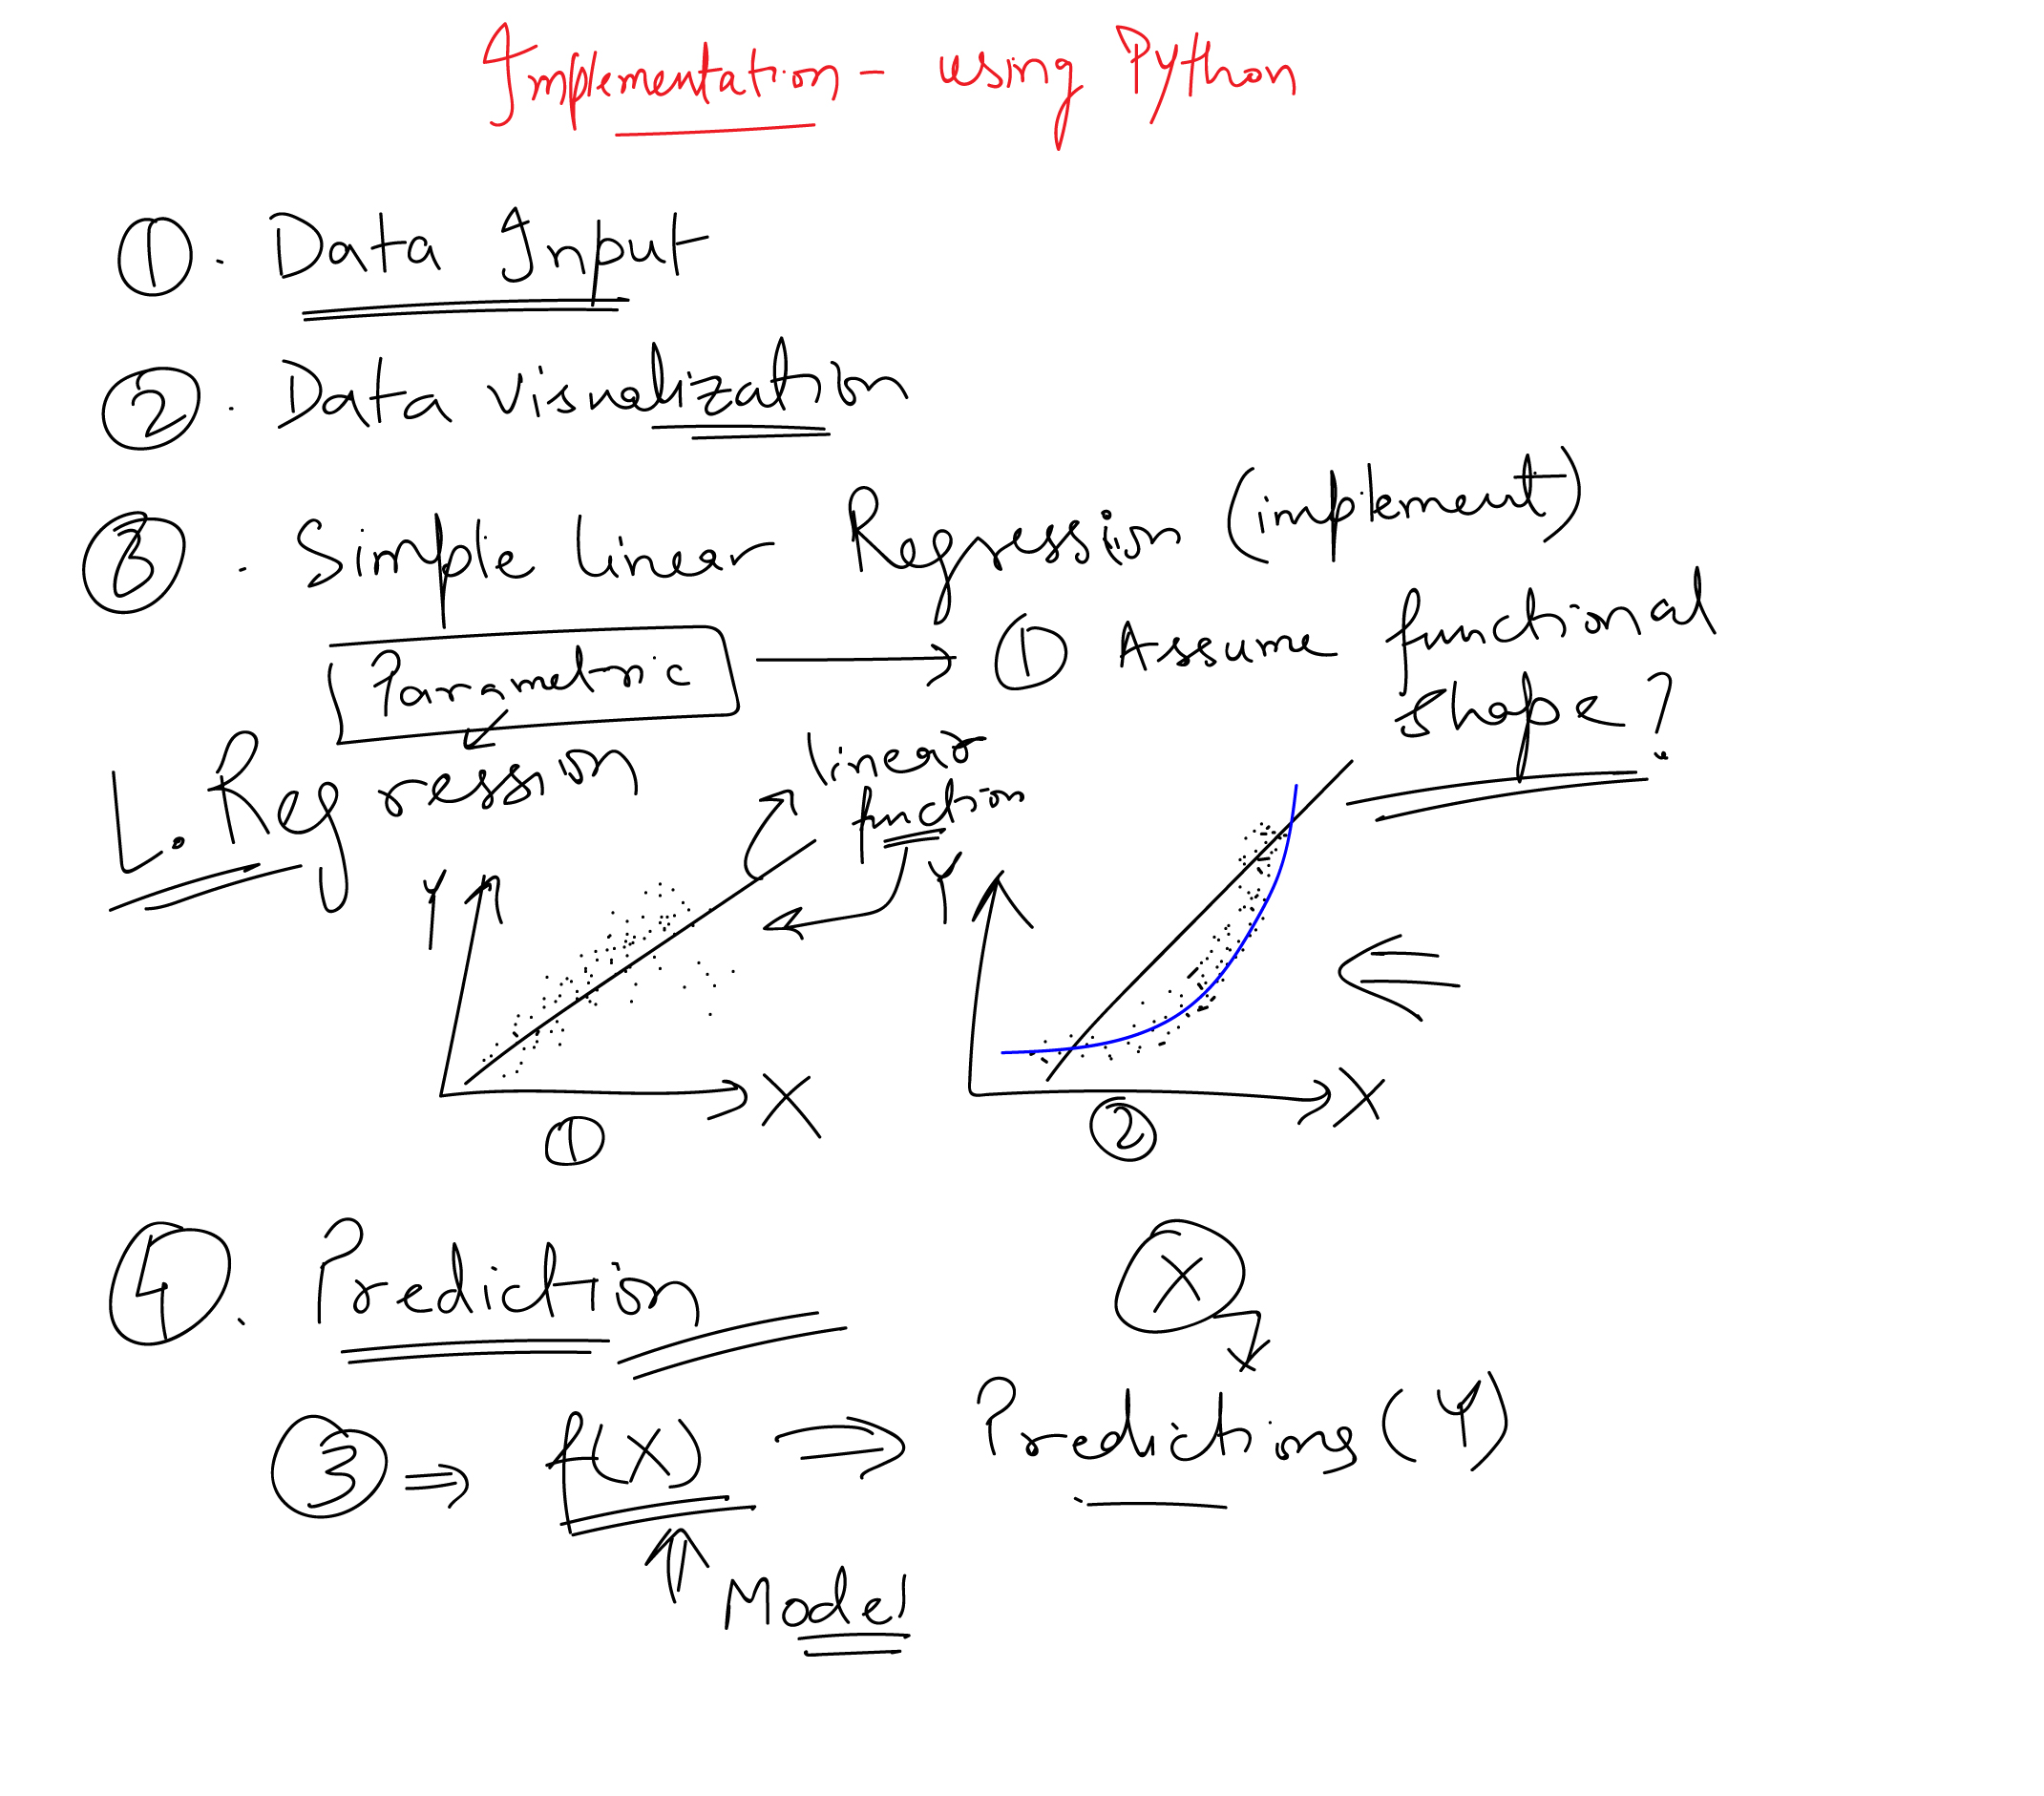 Implementation - using Python
①. Data Input
②. Data visualization
③. Simple linear Regression (implement)
Parametric → ① Assume functional shape?
L. Regression
linear function
Y X ①
Y X ②
④. Prediction
X
③ ⇒ f(X) ⇒ Predictions (Y)
Model